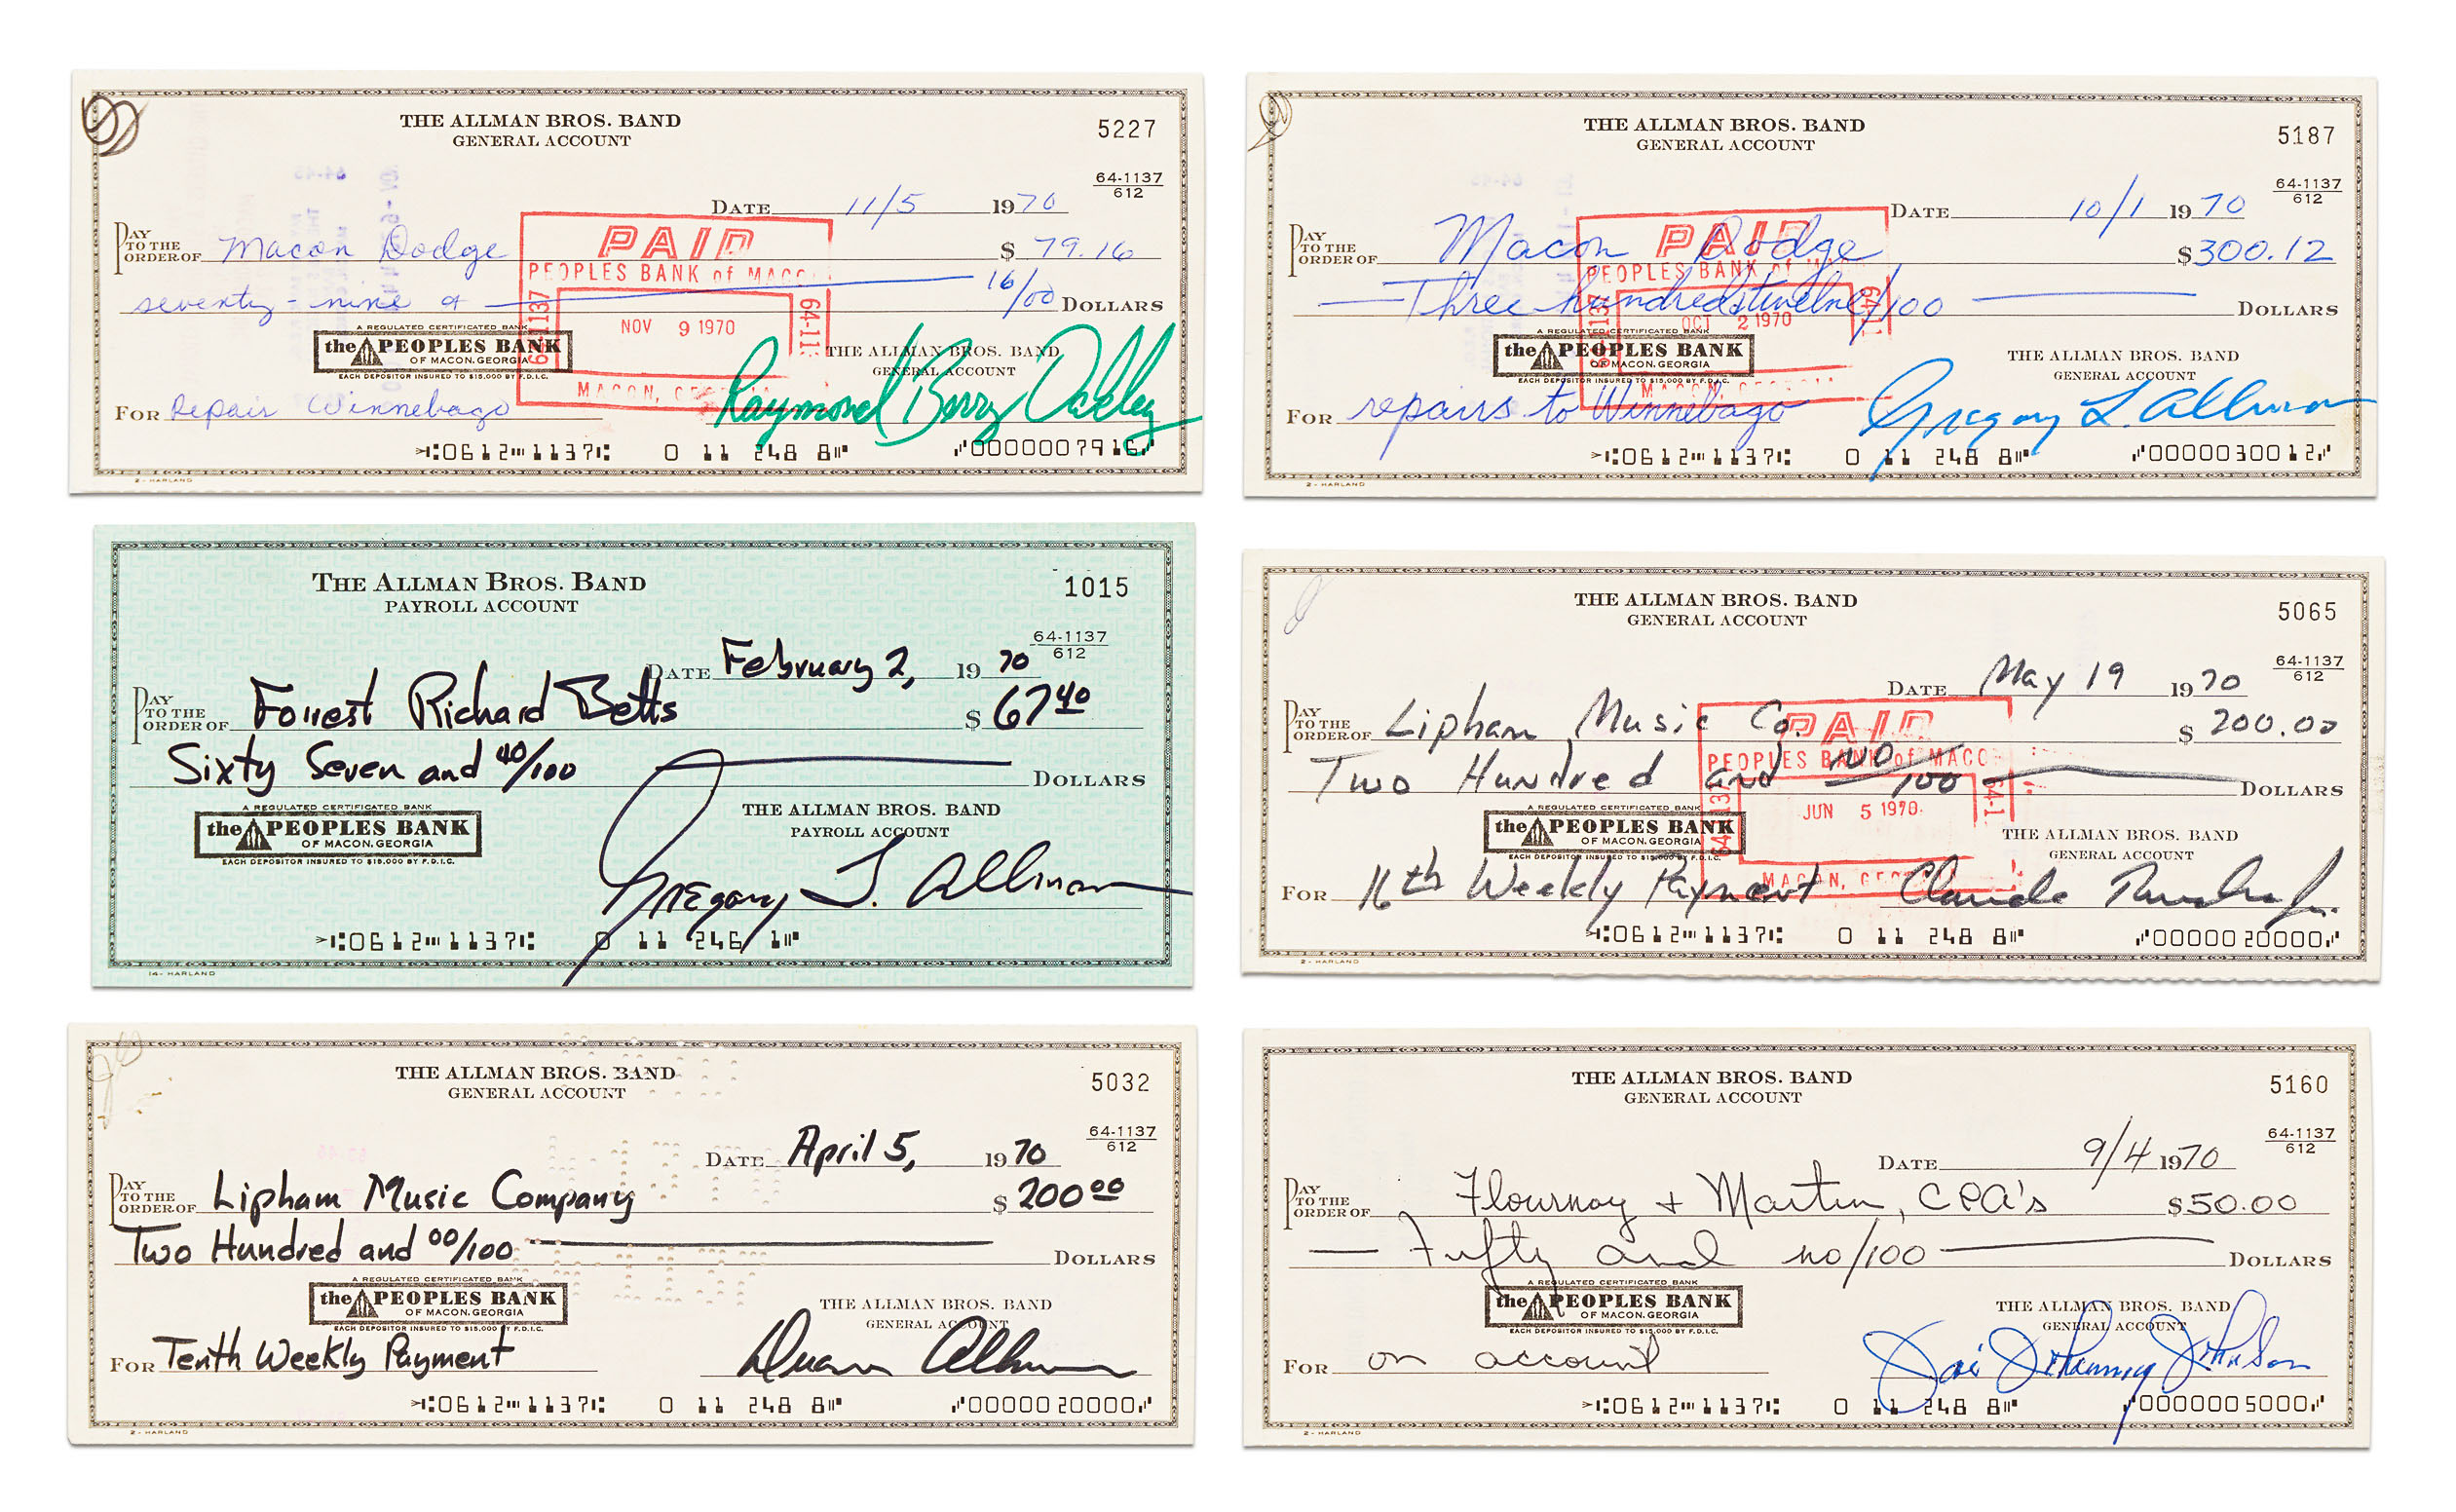 THE ALLMAN BROS. BAND
GENERAL ACCOUNT
5227
64-1137
612
DATE 11/5 1970
PAY TO THE ORDER OF Macon Dodge $ 79.16
seventy-nine & 16/00 DOLLARS
PAID
PEOPLES BANK of MACO
64-1137
64-113
NOV 9 1970
MACON, GEORGIA
A REGULATED CERTIFICATED BANK
the PEOPLES BANK
OF MACON, GEORGIA
EACH DEPOSITOR INSURED TO $15,000 BY F.D.I.C.
THE ALLMAN BROS. BAND
GENERAL ACCOUNT
FOR Repair Winnebago Raymond Berry Oakley
0612 1137 0 11 248 8 0000007916
2 - HARLAND
THE ALLMAN BROS. BAND
GENERAL ACCOUNT
5187
64-1137
612
DATE 10/1 1970
PAY TO THE ORDER OF Macon Dodge $300.12
Three hundred & twelve/100 DOLLARS
PAID
PEOPLES BANK of MA
OCT 2 1970
MACON, GEORGIA
A REGULATED CERTIFICATED BANK
the PEOPLES BANK
OF MACON, GEORGIA
EACH DEPOSITOR INSURED TO $15,000 BY F.D.I.C.
THE ALLMAN BROS. BAND
GENERAL ACCOUNT
FOR repairs to Winnebago Gregory L. Allman
0612 1137 0 11 248 8 0000030012
2 - HARLAND
THE ALLMAN BROS. BAND
PAYROLL ACCOUNT
1015
64-1137
612
DATE February 2, 1970
PAY TO THE ORDER OF Forrest Richard Betts $ 67 40
Sixty Seven and 40/100 DOLLARS
A REGULATED CERTIFICATED BANK
the PEOPLES BANK
OF MACON, GEORGIA
EACH DEPOSITOR INSURED TO $15,000 BY F.D.I.C.
THE ALLMAN BROS. BAND
PAYROLL ACCOUNT
Gregory L. Allman
0612 1137 0 11 246 1
14 - HARLAND
THE ALLMAN BROS. BAND
GENERAL ACCOUNT
5065
64-1137
612
DATE May 19 1970
PAY TO THE ORDER OF Lipham Music Co. $ 200.00
Two Hundred and NO/100 DOLLARS
PAID
PEOPLES BANK of MACO
JUN 5 1970
MACON, GEORGIA
A REGULATED CERTIFICATED BANK
the PEOPLES BANK
OF MACON, GEORGIA
EACH DEPOSITOR INSURED TO $15,000 BY F.D.I.C.
THE ALLMAN BROS. BAND
GENERAL ACCOUNT
FOR 16th Weekly Payment Claude
0612 1137 0 11 248 8 0000020000
2 - HARLAND
THE ALLMAN BROS. BAND
GENERAL ACCOUNT
5032
64-1137
612
DATE April 5, 1970
PAY TO THE ORDER OF Lipham Music Company $ 200 00
Two Hundred and 00/100 DOLLARS
A REGULATED CERTIFICATED BANK
the PEOPLES BANK
OF MACON, GEORGIA
EACH DEPOSITOR INSURED TO $15,000 BY F.D.I.C.
THE ALLMAN BROS. BAND
GENERAL ACCOUNT
FOR Tenth Weekly Payment Duane Allman
0612 1137 0 11 248 8 0000020000
2 - HARLAND
THE ALLMAN BROS. BAND
GENERAL ACCOUNT
5160
64-1137
612
DATE 9/4 1970
PAY TO THE ORDER OF Flournoy + Martin, CPA's $50.00
Fifty and no/100 DOLLARS
A REGULATED CERTIFICATED BANK
the PEOPLES BANK
OF MACON, GEORGIA
EACH DEPOSITOR INSURED TO $15,000 BY F.D.I.C.
THE ALLMAN BROS. BAND
GENERAL ACCOUNT
FOR on account Jai Johanny Johnson
0612 1137 0 11 248 8 0000005000
2 - HARLAND